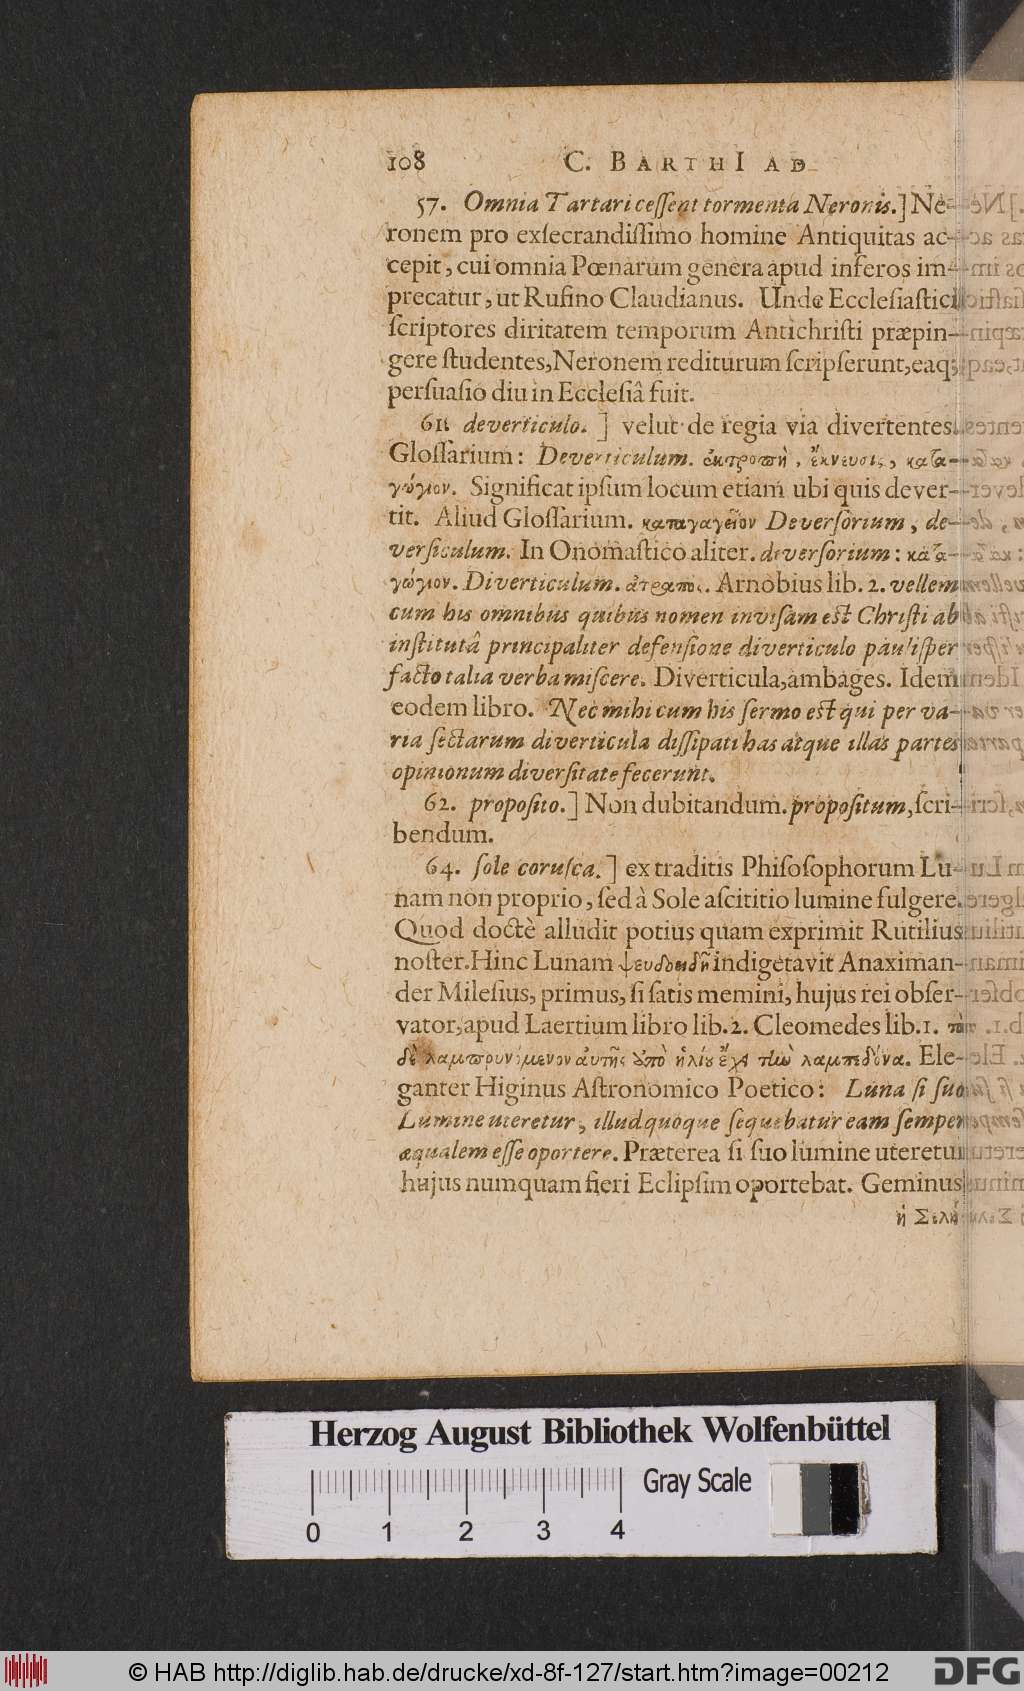 108 C. BARTHI AD
57. Omnia Tartari cessent tormenta Neronis.] Ne-
ronem pro exsecrandissimo homine Antiquitas ac-
cepit, cui omnia Pœnarum genera apud inferos im-
precatur, ut Rufino Claudianus. Unde Ecclesiastici
scriptores diritatem temporum Antichristi præpin-
gere studentes, Neronem rediturum scripserunt, eaq;
persuasio diu in Ecclesiâ fuit.
61 deverticulo.] velut de regia via divertentes.
Glossarium: Deverticulum. ἐκτροπὴ, ἔκνευσις, κατα-
γώγιον. Significat ipsum locum etiam ubi quis dever-
tit. Aliud Glossarium. καταγαγεῖον Deversorium, de-
versiculum. In Onomastico aliter. diversorium: κατα-
γώγιον. Diverticulum. ἀτραπὸς. Arnobius lib. 2. vellem
cum his omnibus quibus nomen invisam est Christi ab
institutâ principaliter defensione diverticulo paulisper
facto talia verba miscere. Diverticula, ambages. Idem
eodem libro. Nec mihi cum his sermo est qui per va-
ria sectarum diverticula dissipati has atque illas partes
opinionum diversitate fecerunt.
62. proposito.] Non dubitandum. propositum, scri-
bendum.
64. sole corusca.] ex traditis Philosophorum Lu-
nam non proprio, sed à Sole ascititio lumine fulgere.
Quod doctè alludit potius quam exprimit Rutilius
noster. Hinc Lunam ψευδοειδῆ indigetavit Anaximan-
der Milesius, primus, si satis memini, hujus rei obser-
vator, apud Laertium libro lib. 2. Cleomedes lib. 1. τὸ
δὲ λαμπρυνόμενον ἀυτῆς ὑπὸ ἡλίου ἔχει τὴν λαμπεδόνα. Ele-
ganter Higinus Astronomico Poetico: Luna si suo
Lumine uteretur, illud quoque sequebatur eam semper
æqualem esse oportere. Præterea si suo lumine uteretur
hujus numquam fieri Eclipsim oportebat. Geminus
ἡ Σελή-
Herzog August Bibliothek Wolfenbüttel
Gray Scale
0 1 2 3 4
© HAB http://diglib.hab.de/drucke/xd-8f-127/start.htm?image=00212
DFG